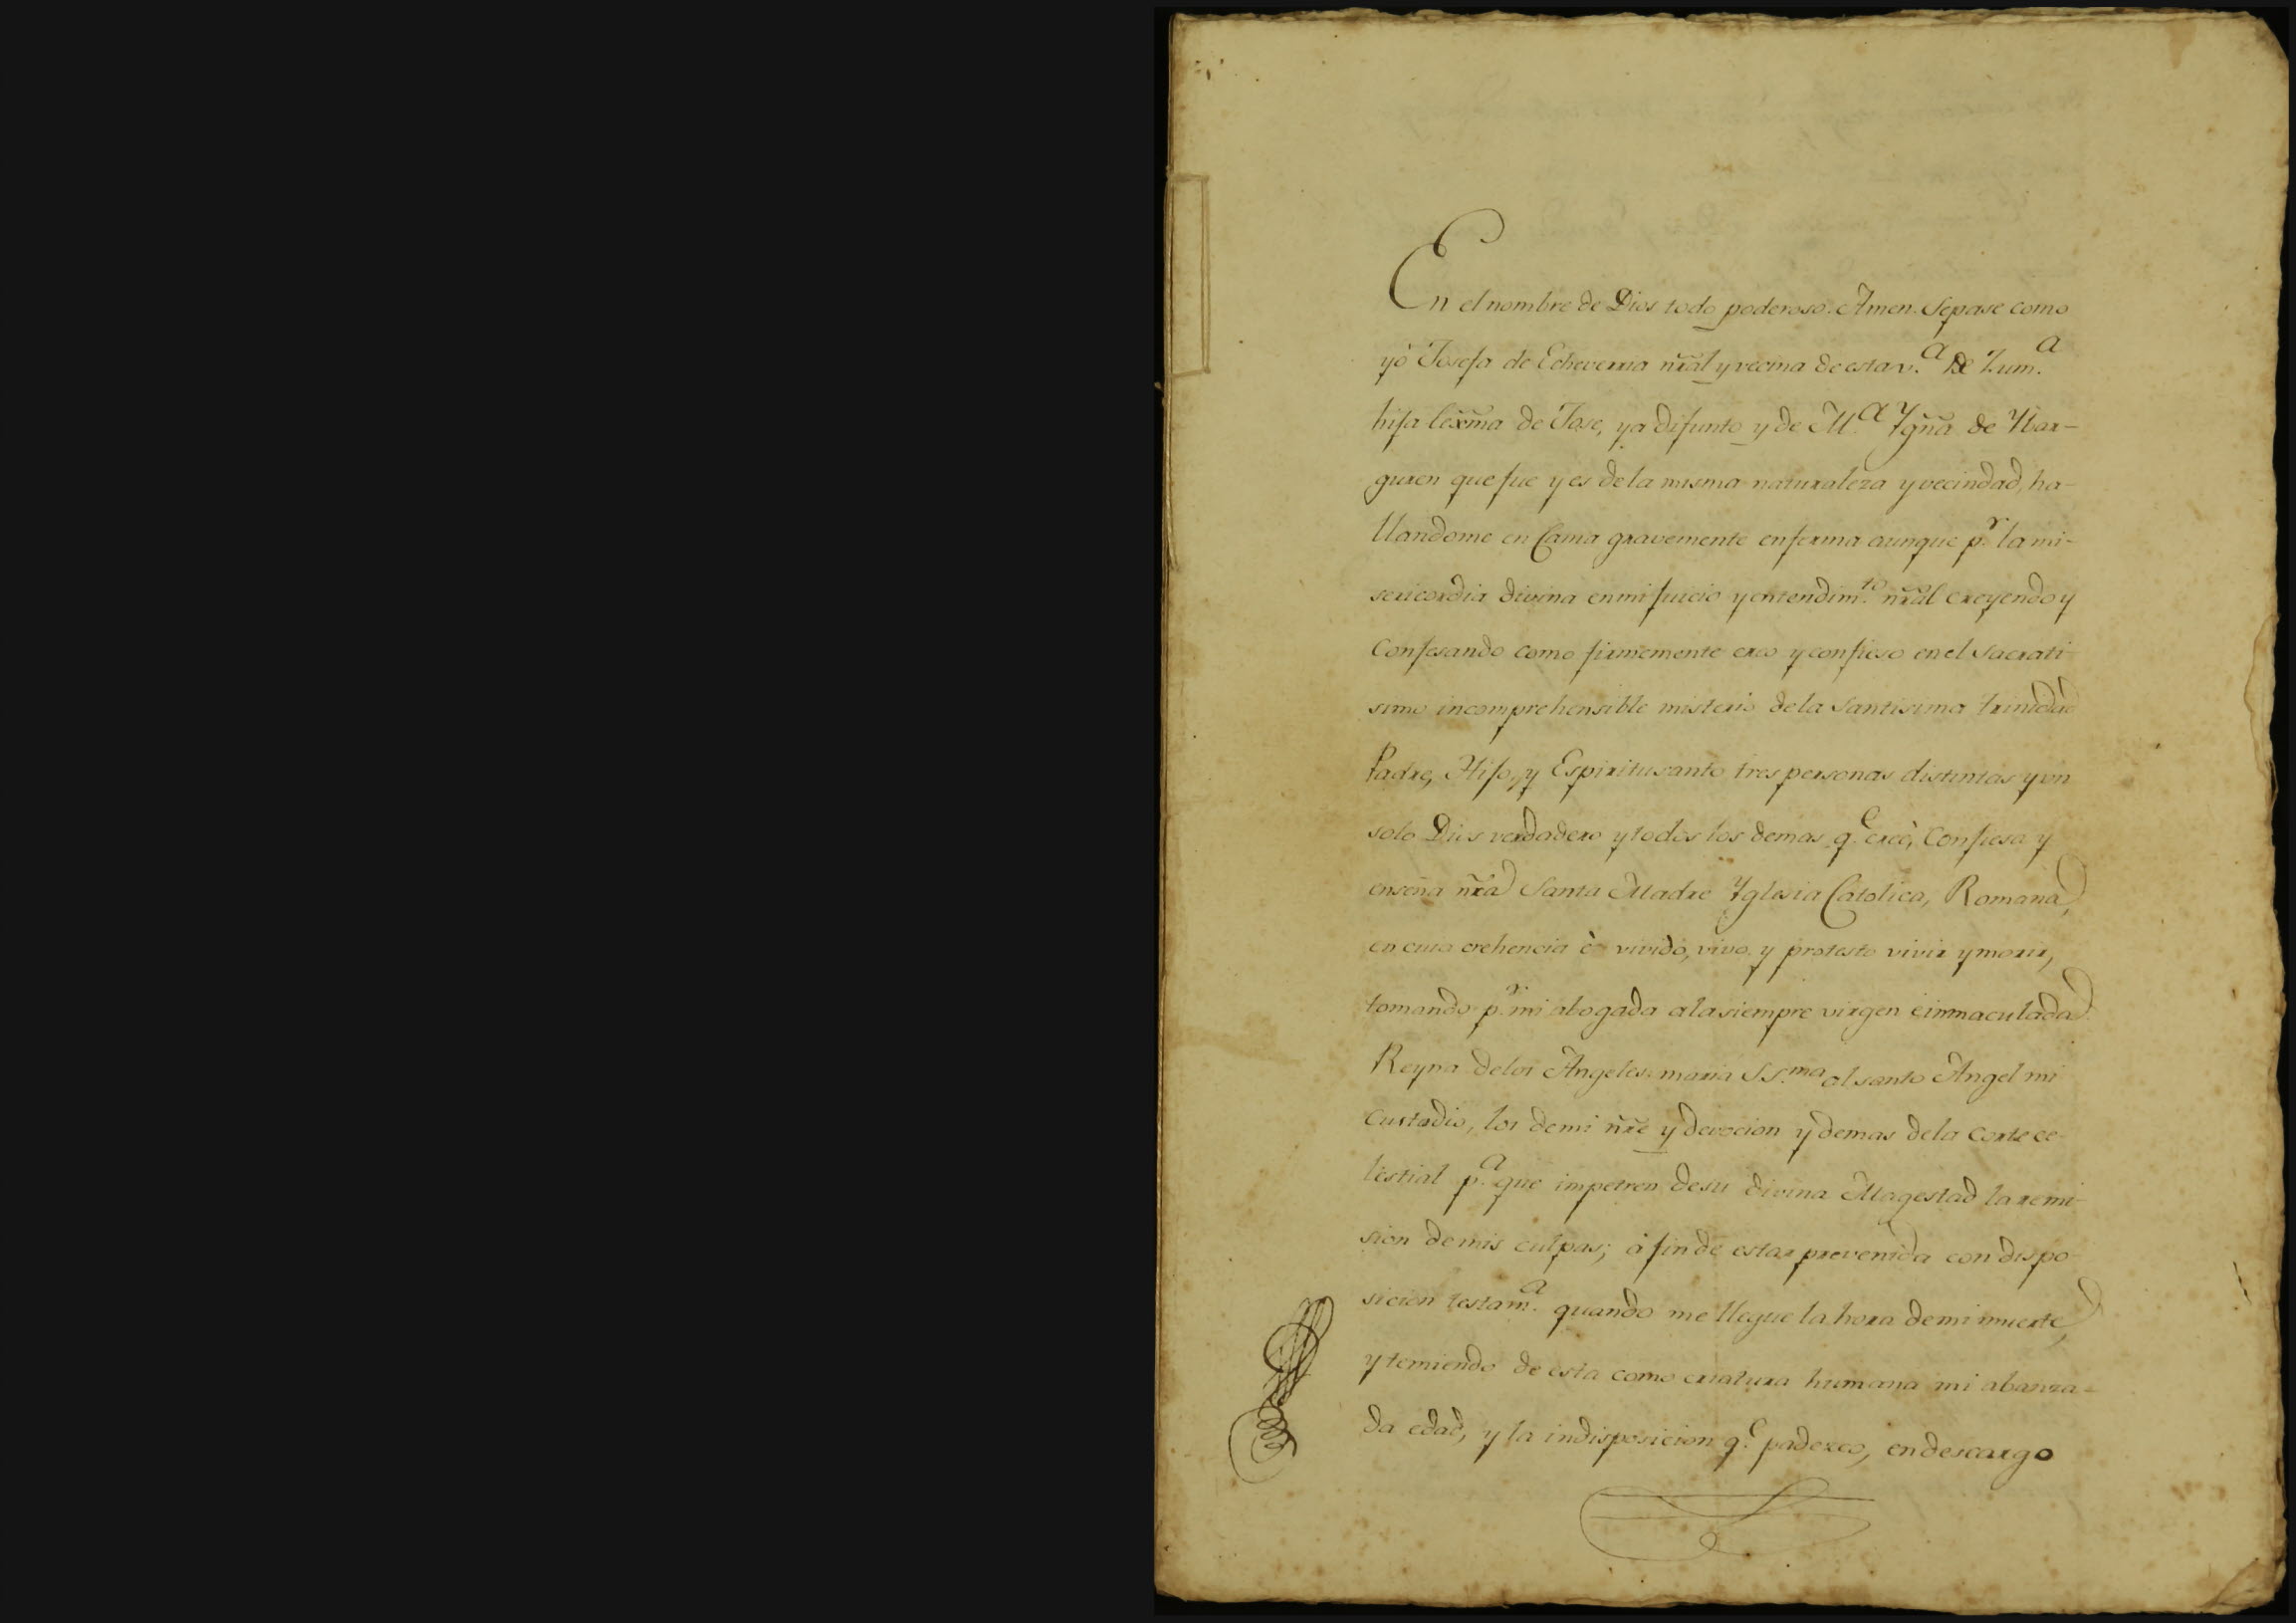 En el nombre de Dios todo poderoso. Amen. Sepase como
yò Josefa de Echeverria nr̃al y vecina de esta v.ª de Zum.ª
hija lex̃ma de Jose, ya difunto y de M.ª Ygñã de Ybar-
guren que fue y es de la misma naturaleza y vecindad, ha-
llandome en Cama gravemente enferma aunque p.r la mi-
sericordia divina en mi juicio y entendim.to nr̃al creyendo y
Confesando como firmemente creo y confieso en el Sacrati-
simo incomprehensible misterio de la Santisima Trinidad
Padre, Hijo, y Espiritu santo tres personas distintas y un
solo Dios verdadero y todos los demas q.e creè, Confiesa y
enseña nr̃a Santa Madre Yglesia Catolica, Romana,
en cuia crehencia è vivido, vivo y protesto vivir y morir,
tomando p.r mi abogada a la siempre virgen è immaculada
Reyna de los Angeles maria SS.ma al santo Angel mi
Custodio, los de mi nr̃e y devocion y demas de la Corte ce-
lestial p.ª que impetren de su divina Magestad la remi-
sion de mis culpas; à fin de estar prevenida con dispo-
sicion testam.ª quando me llegue la hora de mi muerte,
y temiendo de esta como criatura humana mi abanza-
da edad, y la indisposicion q.e padezco, en descargo